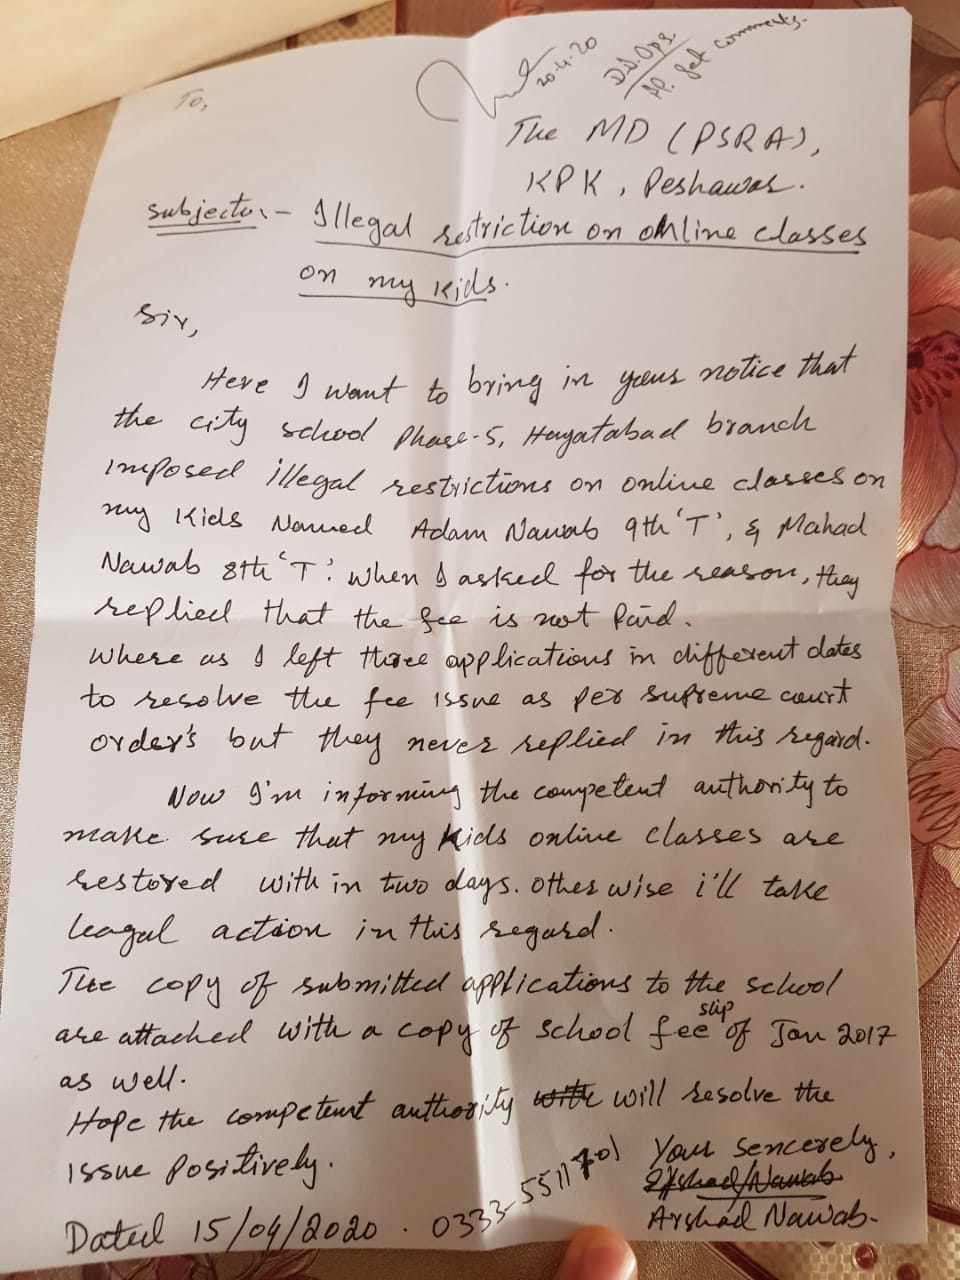 20.4.20
To,
The MD (PSRA),
KPK, Peshawar.
Subject:- Illegal restriction on online classes
on my kids.
Sir,
Here I want to bring in your notice that
the city school Phase-5, Hayatabad branch
imposed illegal restrictions on online classes on
my Kids Named Adam Nawab 9th 'T', & Mahad
Nawab 8th 'T'. When I asked for the reason, they
replied that the fee is not Paid.
Where as I left three applications in different dates
to resolve the fee issue as per supreme court
order's but they never replied in this regard.
Now I'm informing the competent authority to
make sure that my Kids online classes are
restored with in two days. Other wise i'll take
leagal action in this regard.
The copy of submitted applications to the school
are attached with a copy of school fee slip of Jan 2017
as well.
Hope the competent authority will resolve the
issue positively.
Your sencerely,
Arshad Nawab.
Dated 15/04/2020. 0333-5511701